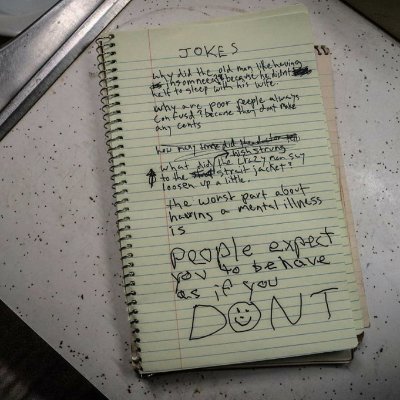 JOKES
why did the old man like having
insomneea? because he didnt
haff to sleep with his wife.
why are poor peeple always
confused? because they dont make
any cents
how may
high strung
what did the crazy man say
to the strait jacket?
loosen up a little.
the worst part about
having a mental illness
is
people expect
you to behave
as if you
DONT